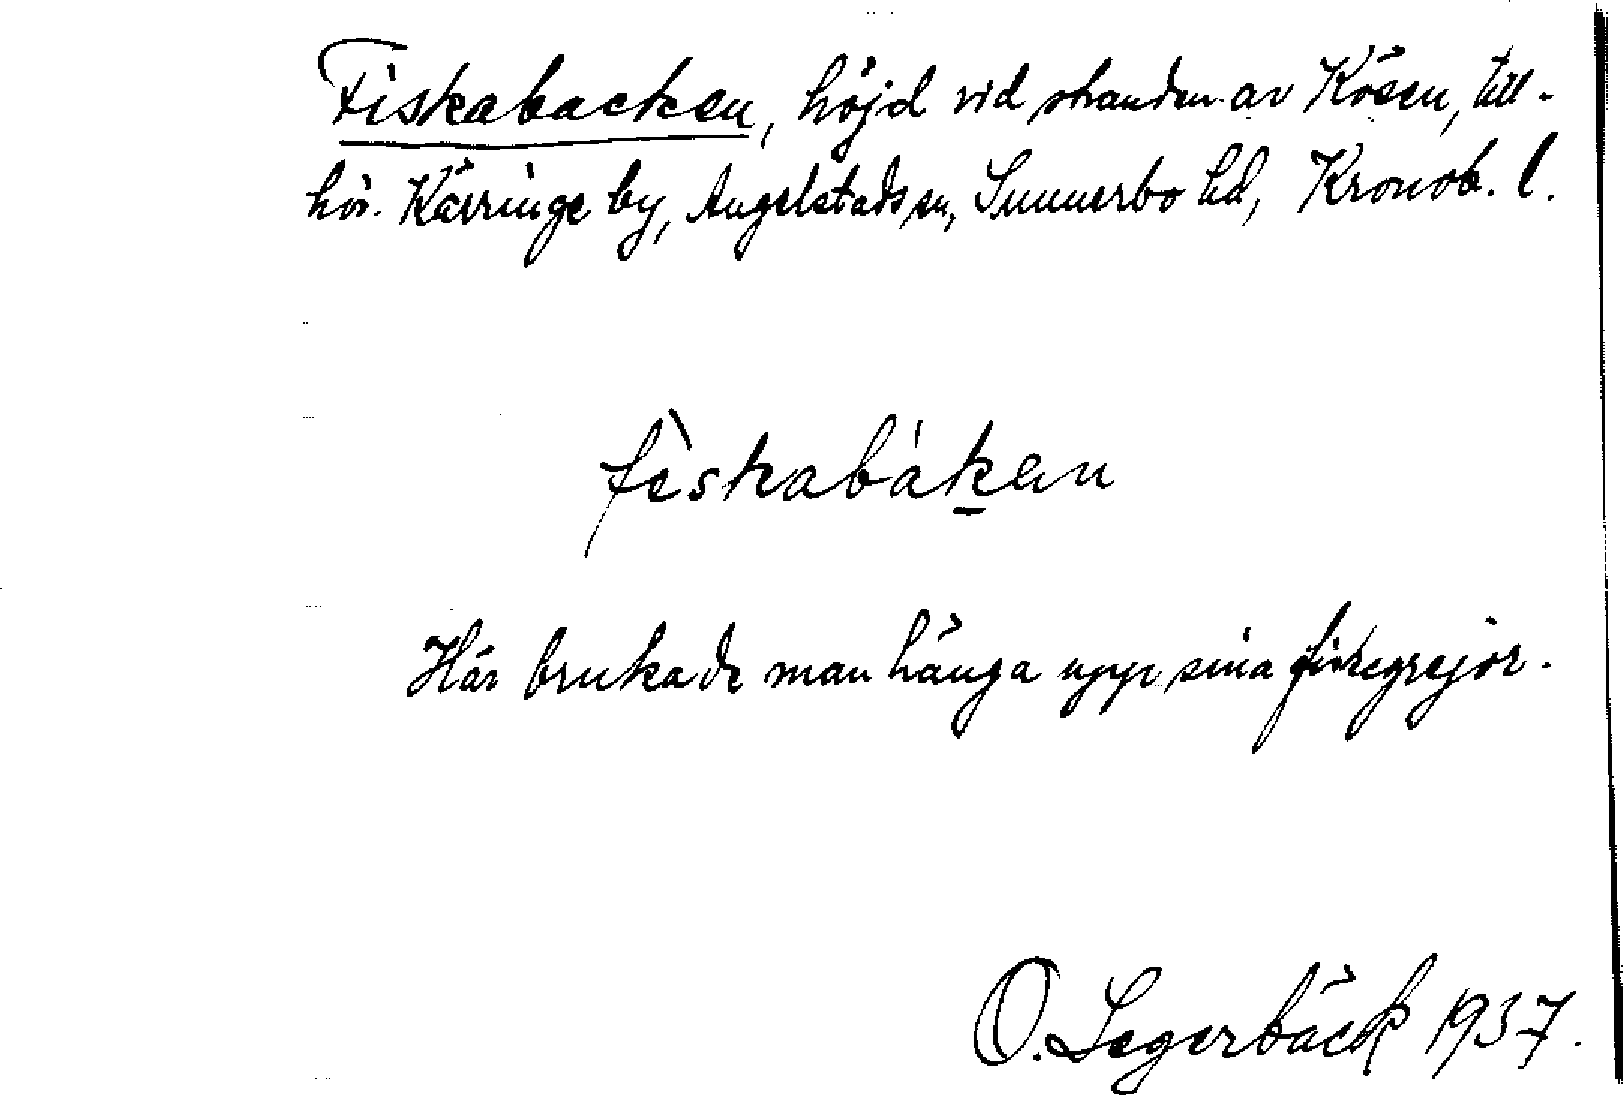 Fiskabacken, höjd vid stranden av Kösen, till-
hör. Kärringe by, Angelstads sn, Sunnerbo hd, Kronob. l.
fèskabáken
Här brukade man hänga upp sina fiskegrejor.
O. Segerbäck 1937.